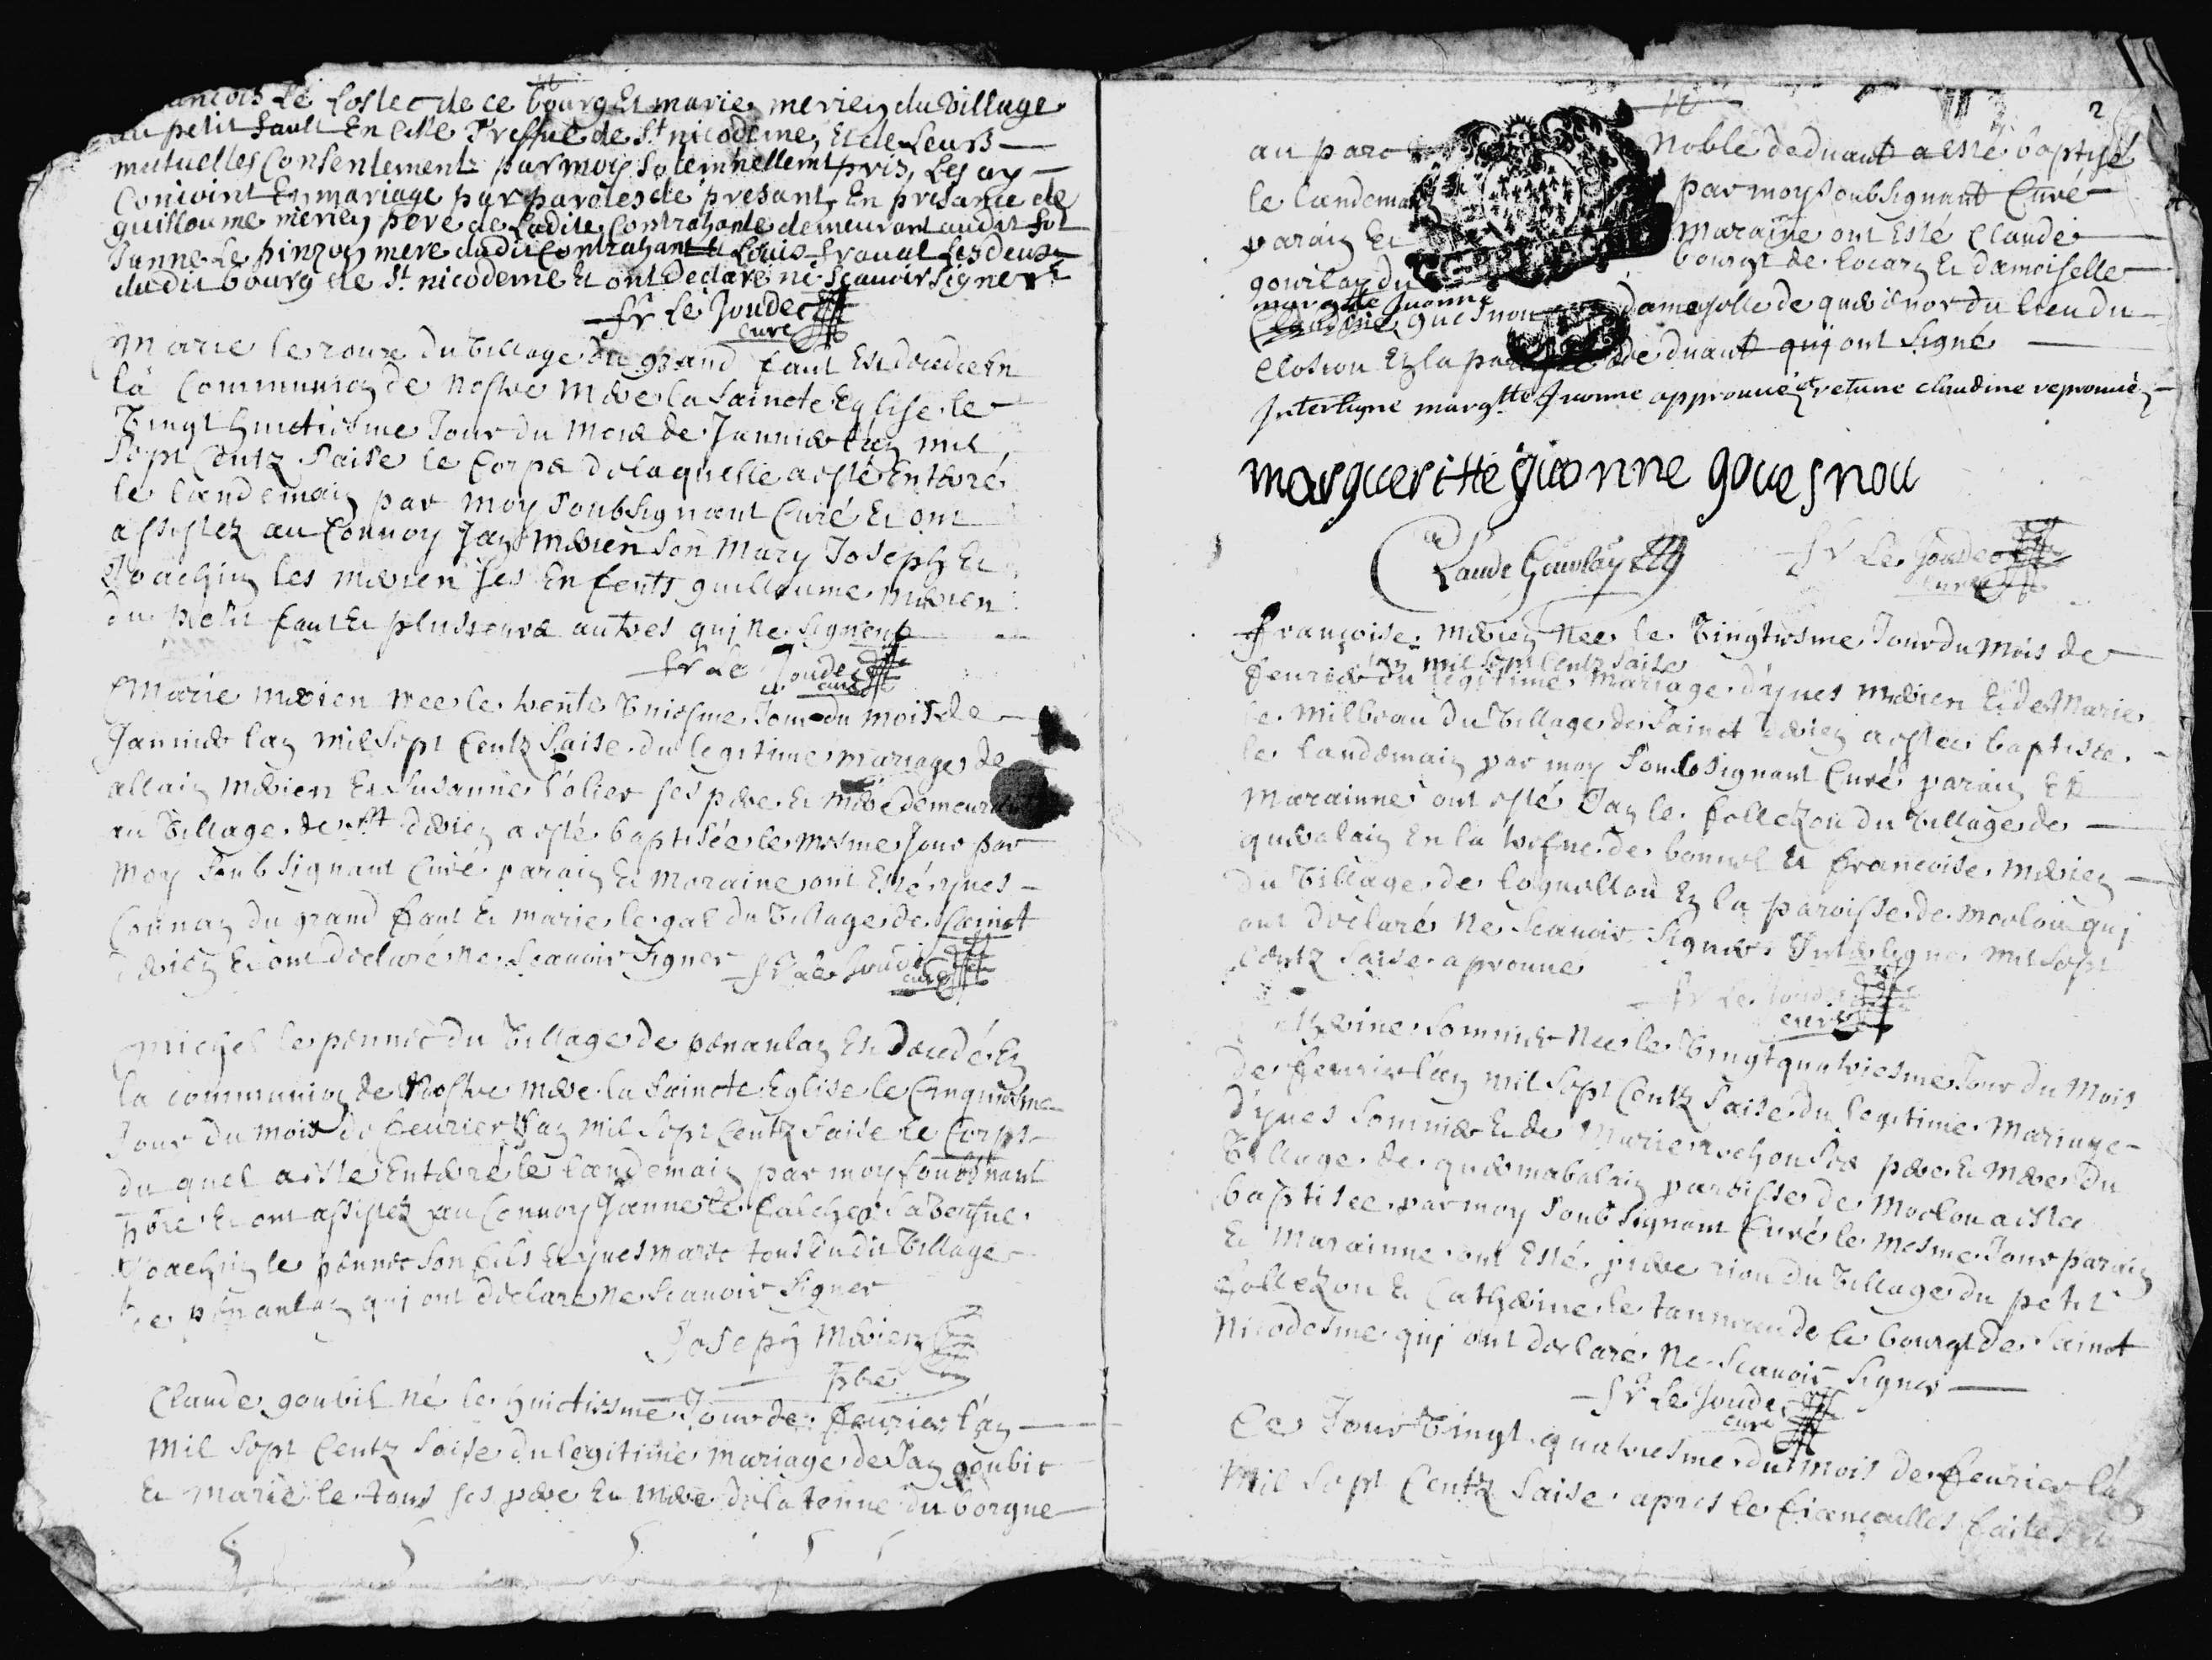 Le Coslec de ce bourg Et marie merien du village
du petit fault En cette Treffue de St nicodeme, Et de Leurs
mutuelles Consentements par moy Solemnellemt pris, Les ay
Conioint En mariage par paroles de presant, En presance de
guilloume merien pere de Ladite Contrahante demeurant audit
Janne Le pinzon mere dudit Contrahant Et Louis fraual Les deux
dudit bourg de St nicodeme Et ont Declaré ne Scauoir Signer
fr Le Joudec
Curé
Marie le roux du Village du grand faut Est decedee En
la Communion de Nostre Mere la Saincte Eglise le
Vingt huictiesme Jour du Mois de Januier l'an mil
Sept Centz Saise le Corps de laquelle a esté Enterré
le Landemain par Moy Soubsignant Curé Et ont
assistez au Conuoy Jan Merien Son Mary Joseph Et
Joachin les Merien Ses Enfents guillaume Merien
du petit faut Et plusieurs autres qui Ne Signent
fr Le Joudec
curé
Marie Merien Nee le trente Vniesme Jour du mois de
Januier l'an Mil Sept Centz Saise du legitime mariage de
allain Merien Et Susanne l'olier ses pere Et Mere demeurant
au Village de St drien a esté baptisée le Mesme Jour par
Moy Soubsignant Curé parain Et Maraine ont Esté yues
Connan du grand faut Et Marie le gal du Village de Sainct
drien Et ont declaré Ne Scauoir Signer fr Le Joudec
curé
Michel le pennec du Village de penanlan Est Decedé En
la communion de Nostre Mere la Saincte Eglise le Cinquiesme
Jour du Mois de feurier l'an Mil Sept Centz Saise le Corps
du quel a este Enterré le landemain par moy Soubsignant
pbre Et ont assistez au Conuoy Janne le falcher Sa
Joachin le pennec Son fils Et yues marec tous dudit Village
de penanlan qui ont declaré Ne Scauoir Signer
Joseph Merien
pbre
Claude goubil Né le huictiesme Jour de feurier l'an
Mil Sept Centz Saise du legitime Mariage de Jan goubil
Et Marie le tous ses pere Et Mere de la tenue du borgne
2
au parc Noble deduault a esté baptisé
le Landemain par moy Soubsignant Curé
parain Et Maraine ont Esté Claude
gourlay du bourgt de Locarn Et damoiselle
margtte Juonne
Claudine guesnou dameselle de querenor du lieu du
Closiou En la paroisse de duault qui ont Signé
Interligne margtte Juonne approuué et rature claudine reprouué
margueritte yuonne gouesnou
Claude Gourlay
fr Le Joudec
curé
françoise Merien Nee le Vingtiesme Jour du Mois de
l'an mil Sept Centz Saise
feurier du legitime Mariage d'yues Merien Et de Marie
le Milbeau du Village de Sainct drien a estee baptisée
le landemain par moy Soubsignant Curé parain Et
Marainne ont esté Jan le follezou du Village de
querbalain En la trefue de bonuel Et françoise Merien
du Village de loguellou En la paroisse de Merlou qui
ont declaré Ne Scauoir Signer Interligne Mil Sept
Centz Saise aprouué
fr Le Joudec
curé
Sommier Nee le Vingt quatriesme Jour du Mois
de feurier l'an Mil Sept Centz Saise du legitime Mariage
d'yues Sommier Et de Marie ses pere Et Mere du
Village de quermabalain paroisse de Merlou a estee
baptisee par moy Soubsignant Curé le Mesme Jour parain
Et Marainne ont Esté piere riou du Village du petit
follezou Et Catherine le tannou de le bourgt de Sainct
Nicodesme qui ont declaré Ne Scauoir Signer
fr Le Joudec
curé
Ce Jour Vingt quatriesme du Mois de feurier l'an
Mil Sept Centz Saise apres le fiancailles faites